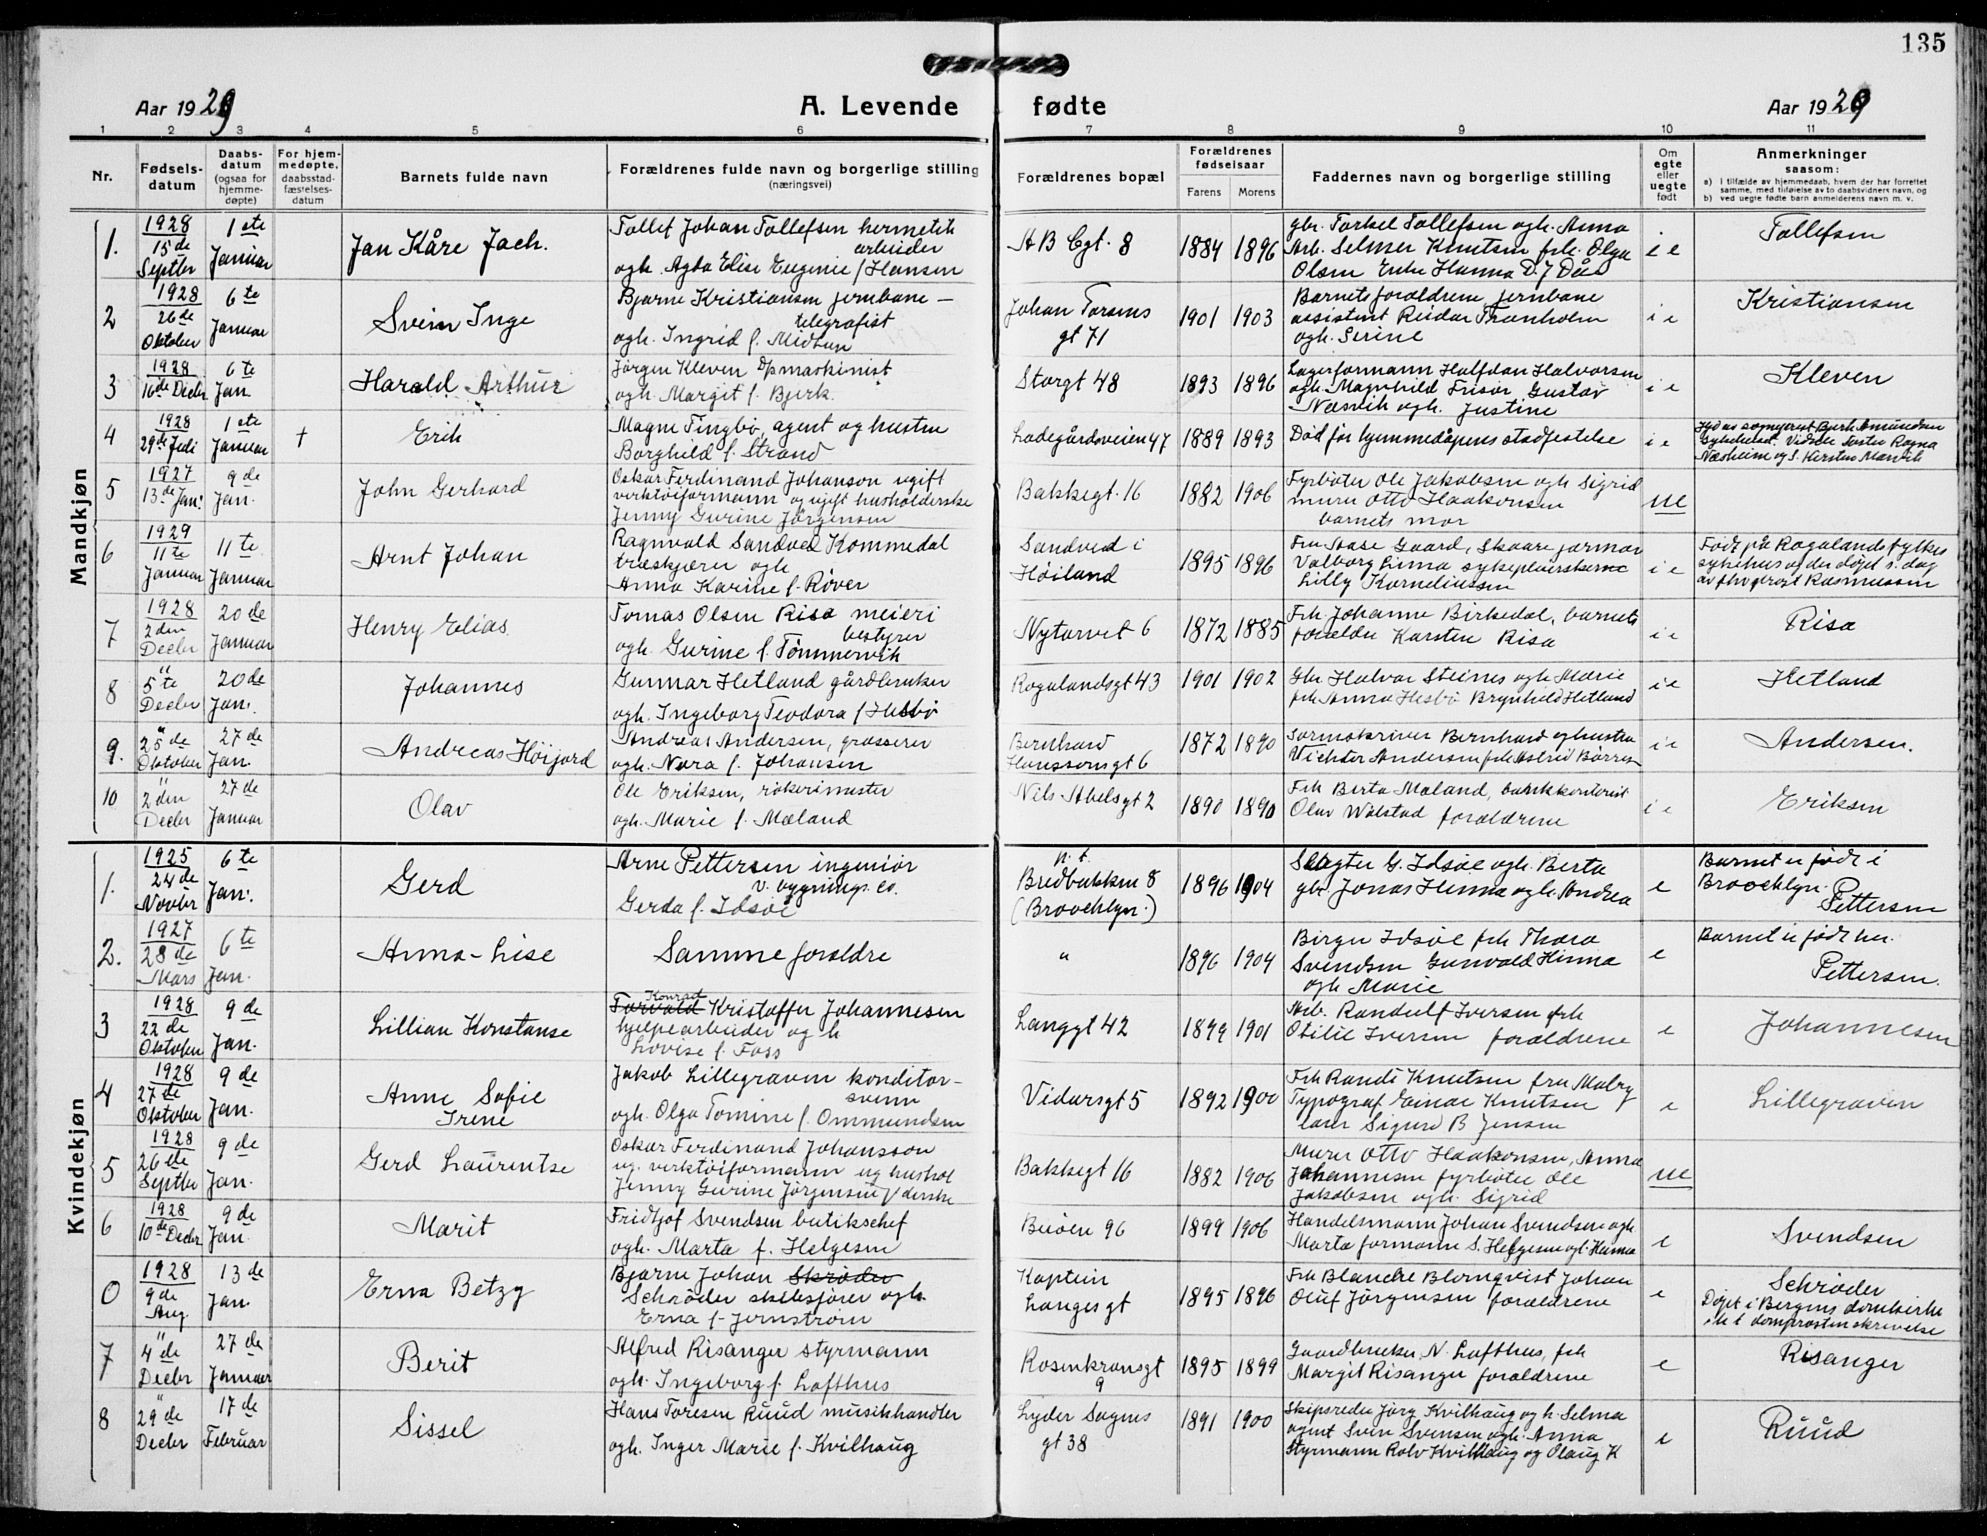 135
Aar 1929
A. Levende fødte
Aar 1929
1 2 3 4 5 6 7 8 9 10 11
Nr.
Fødsels-
datum
Daabs-
datum
(ogsaa for
hjemme-
døpte)
For hjem-
medøpte,
daabsstad-
fæstelses-
datum
Barnets fulde navn
Forældrenes fulde navn og borgerlige stilling
(næringsvei)
Forældrenes bopæl
Forældrenes
fødselsaar
Farens Morens
Faddernes navn og borgerlige stilling
Om
egte
eller
uegte
født
Anmerkninger
saasom:
a) i tilfælde av hjemmedaab, hvem der har forrettet
samme, med tilføielse av to daabsvidners navn, og
b) ved uegte fødte barn anmelderens navn m. v.
Mandkjøn
1.
1928
15 de
Septbr
1ste
Januar
Jan Kåre Jach.
Tollef Johan Tollefsen hermetik
arbeider
ogh. Agda Elise Eugenie f Hansen
A B Cgt. 8
1884 1896
gbr. Torkel Tollefsen ogh. Anna
Arb. Selmer Knutsen frk. Olga
Olsen Enke Hanna D.
i e
Tollefsen
2
1928
26 de
Oktober
6te
Januar
Svein Inge
Bjarne Kristiansen jernbane-
telegrafist
ogh. Ingrid f. Midtun
Johan Torsens
gt 71
1901 1903
Barnets forældrene jernbane
assistent Reidar Tranholm
ogh. Serine
i e
Kristiansen
3
1928
16 de Decbr
6te
Jan.
Harald Arthur
Jørgen Kleven Dpmaskinist
ogh. Margit f. Bjerk.
Storgt 48
1893 1896
Lagerformann Halfdan Halvorsen
ogh. Magnhild Frisør Gustav
Næsvik ogh. Justine
i e
Kleven
4
1928
29 de Juli
1ste
Januar
+
Erik
Magne Tingbø, agent og hustru
Borghild f. Strand
Ladegårdsveien 47
1889 1893
Død før hjemmedåpens stadfestelse
i e
Amundsen
sykehus. Vidner søster Ragna
Næsheim og S. Kirsten Marvik
5
1927
13 de Jan.
9 de
Jan.
John Gerhard
Oskar Ferdinand Johanson ugift
verktøiformann og ugift husholderske
Jenny Gurine Jörgensen
Bakkegt. 16
1882 1906
Fyrbøter Ole Jakobsen ogh Sigrid
murer Otto Haakonsen
barnets mor
ue
6
1929
11te
Januar
11te
Januar
Arnt Johan
Ragnvald Sandved Kommedal
træskjærer ogh
Anna Karine f. Røver
Sandved i
Høiland
1895 1896
Fru Aase Gaard, Skaare jormor
Valborg Lima sykepleierskerne
Lilly Korneliussen
i e
Født på Rogalands fylkes
sykehus og der døpt s. dag
av fhv gerost Rasmussen
7
1928
2den
Decbr
20 de
Januar
Henry Elias
Tomas Olsen Risa meieri
bestyrer
ogh. Gurine f. Tømmervik
Nytorvet 6
1872 1885
Frk. Johanne Birkedal, barnets
forældre Karsten Risa
i e
Risa
8
"
5 te
Decbr
20 de
Jan.
Johannes
Gunnar Hetland gårdbruker
ogh. Ingeborg Teodora f Hesbø
Rogalandsgt 43
1901 1902
Gbr Halvar Steines ogh Marie
frk Anna Hesbø Brynhild Hetland
i e
Hetland
9.
"
25 de
Oktober
27 de
Jan.
Andreas Höijord
Andreas Andersen, grosserer
ogh. Nora f. Johansen
Bernhard
Hanssonsgt 6
1872 1890
Sormskriver Bernhard oghustru
Andersen frk Astrid Børres
i e
Andersen.
10
"
2den
Decbr
27 de
Januar
Olav
Ole Eriksen, røkerimester
ogh. Marie f. Mæland
Nils Abelsgt 2
1890 1890
Frk Berta Mæland, bankkontorist
Olav Wålstad forældrene
i e
Eriksen
Kvindekjøn
1.
1925
24 de
Novbr
6te
Jan.
Gerd
Arne Pettersen ingeniør
v. bygnings. co.
Gerda f. Idsöe
p. t.
Bredbakken 8
(Broocklyn.)
1896 1904
Slagter G. Idsöe ogh. Berta
gbr. Jonas Hinna ogh. Andrea
e
Barnet er født i
Broocklyn.
Pettersen
2.
1927
28 de
Mars
6te
Jan.
Anna-Lise
Samme forældre
"
1896 1904
Birger Idsöe frk Thora
Svendsen Gunvald Hinna
ogh Marie
e
Barnet er født her.
Pettersen.
3
1928
22 de
Oktober
9 de
Jan.
Lillian Konstanse
Konrad
Torvald Kristoffer Johannesen
hjelpearbeider og h
Lovise f. Foss
Langgt 42
1899 1901
Arb. Randulf Iversen frk
Otilie Iversen forældrene
e
Johannesen
4
1928
27 de
Oktober
9 de
Jan.
Anne Sofie
Irene
Jakob Lillegraven konditor-
svenn
ogh. Olga Tomine f. Ommundsen
Vidarsgt 5
1892 1900
Frk Randi Knutsen fru Molry
Typograf Einar Knutsen
lærer Sigurd B Jensen
e
Lillegraven
5
1928
26 de
Septbr
9 de
Jan.
Gerd Laurentse
Oskar Ferdinand Johansson
ug. verktøiformann ug hushol
Jenny Gurine Jörgensen / derske
Bakkegt 16
1882 1906
Murer Otto Haakonsen, Anna
Johannesen fyrbøter Ole
Jakobsen ogh. Sigrid
ue
6
1928
10 de Decbr
9 de
Jan.
Marit
Fridtjof Svendsen butikschef
ogh. Marta f. Helgesen
Buöen 96
1899 1906
Handelsmann Johan Svendsen ogh
Marta formann S. Helgesen ogh. Hanna
e
Svendsen
0
1928
9 de
Aug.
13 de
Jan.
Erna Betzy
Bjarne Johan Skrøder
Schrøder skibsfører ogh.
Erna f. Jernstrøm
Kaptein
Langes gt
1895 1896
Frk Blanche Blomqvist Johan
Oluf Jörgensen forældrene
e
Schrøder
Døpt i Bergens domkirke
i.h.t. domprostens skrivelse
7
"
4 de
Decbr
27 de
Januar
Berit
Alfred Risanger styrmann
ogh. Ingeborg f. Lofthus
Rosenkransgt
9
1895 1899
Gaardbruker N. Lofthus, frk
Margit Risanger forældrene
e
Risanger
8
"
29 de
Decbr
17 de
Februar
Sissel
Hans Toresen Ruud musikhandler
ogh. Inger Marie f. Kvilhaug
Lyder Sagens
gt 38
1891 1900
Skipsreder Jörg Kvilhaug og h. Selma
agent Sven Svensen ogh. Anna
Styrmann Rolv Kvilhaug og Olaug K
e
Ruud